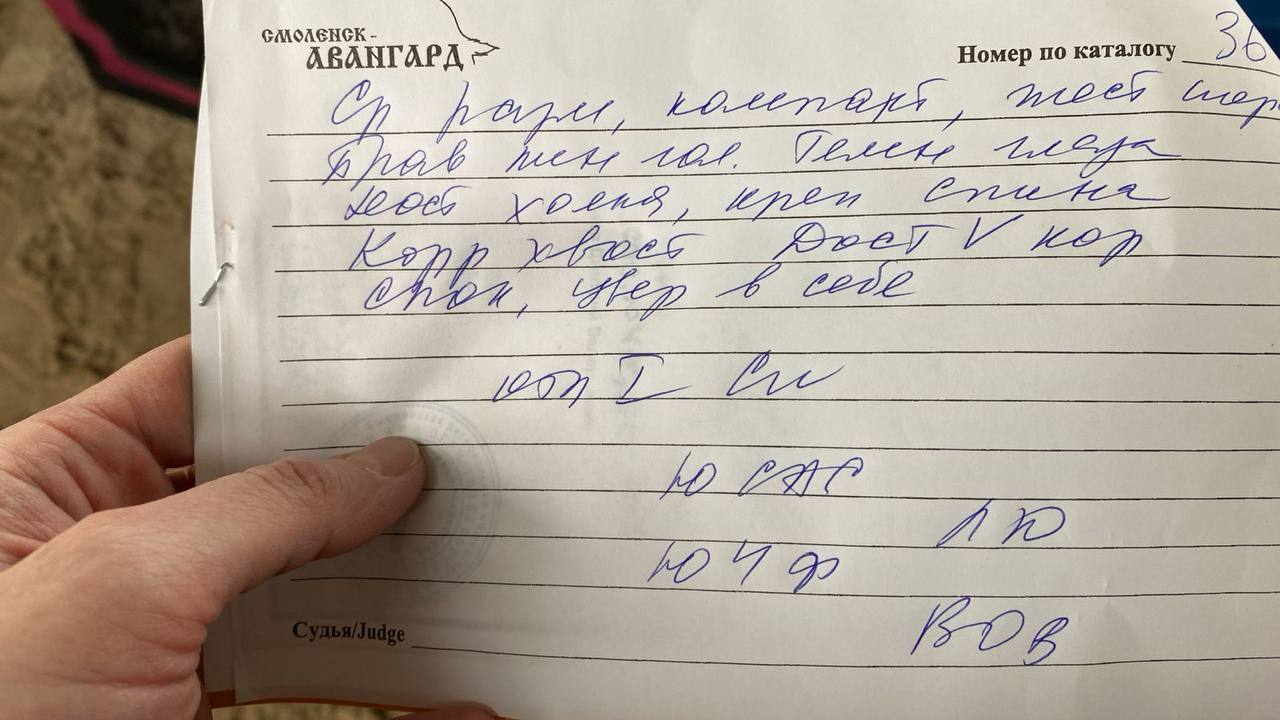 СМОЛЕНСК-
АВАНГАРД
Номер по каталогу 36
Ср разм, компакт, жест шер
прав жен гол. Темн глаза
дост холка, креп спина
Корр хвост Дост V кор
спок, увер в себе
отл I Сш
Ю САС
ЛЮ
ЮЧФ
ВОВ
Судья/Judge